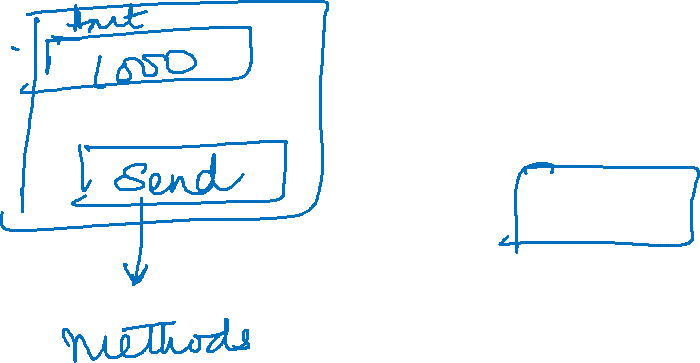 Amt
1000
Send
Methods